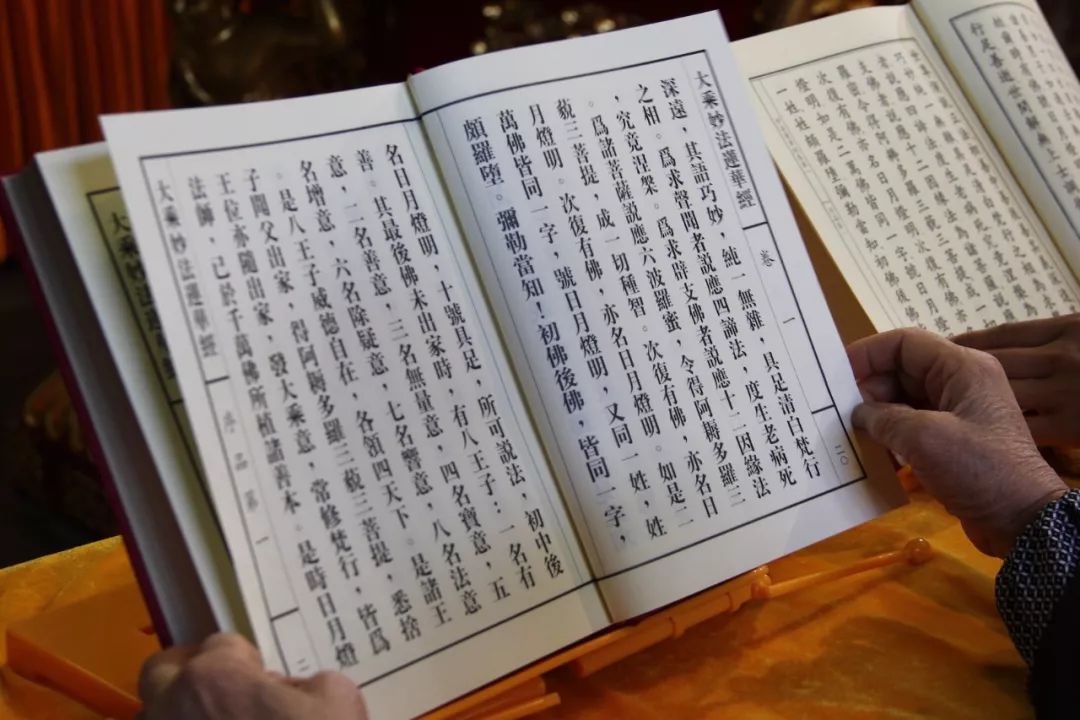 行足善逝世間解無上士調
羅蜜令得阿耨多羅三藐三菩提成一
次復有佛亦名日月燈明次復有佛亦
燈明如是二萬佛皆同一字號日月燈
一姓姓頗羅墮彌勒當知初佛後佛
大乘妙法蓮華經 卷一 二〇
深遠,其語巧妙,純一無雜,具足清白梵行
之相。爲求聲聞者說應四諦法,度生老病死
,究竟涅槃。爲求辟支佛者說應十二因緣法
。爲諸菩薩說應六波羅蜜,令得阿耨多羅三
藐三菩提,成一切種智。次復有佛,亦名日
月燈明。次復有佛,亦名日月燈明。如是二
萬佛皆同一字,號日月燈明,又同一姓,姓
頗羅墮。彌勒當知!初佛後佛,皆同一字,
名日月燈明,十號具足,所可說法,初中後
善。其最後佛未出家時,有八王子:一名有
意,二名善意,三名無量意,四名寶意,五
名增意,六名除疑意,七名響意,八名法意
。是八王子威德自在,各領四天下。是諸王
子聞父出家,得阿耨多羅三藐三菩提,悉捨
王位亦隨出家,發大乘意,常修梵行,皆爲
法師,已於千萬佛所植諸善本。是時日月燈
大乘妙法蓮華經 序品第一 二
大乘妙法蓮華經